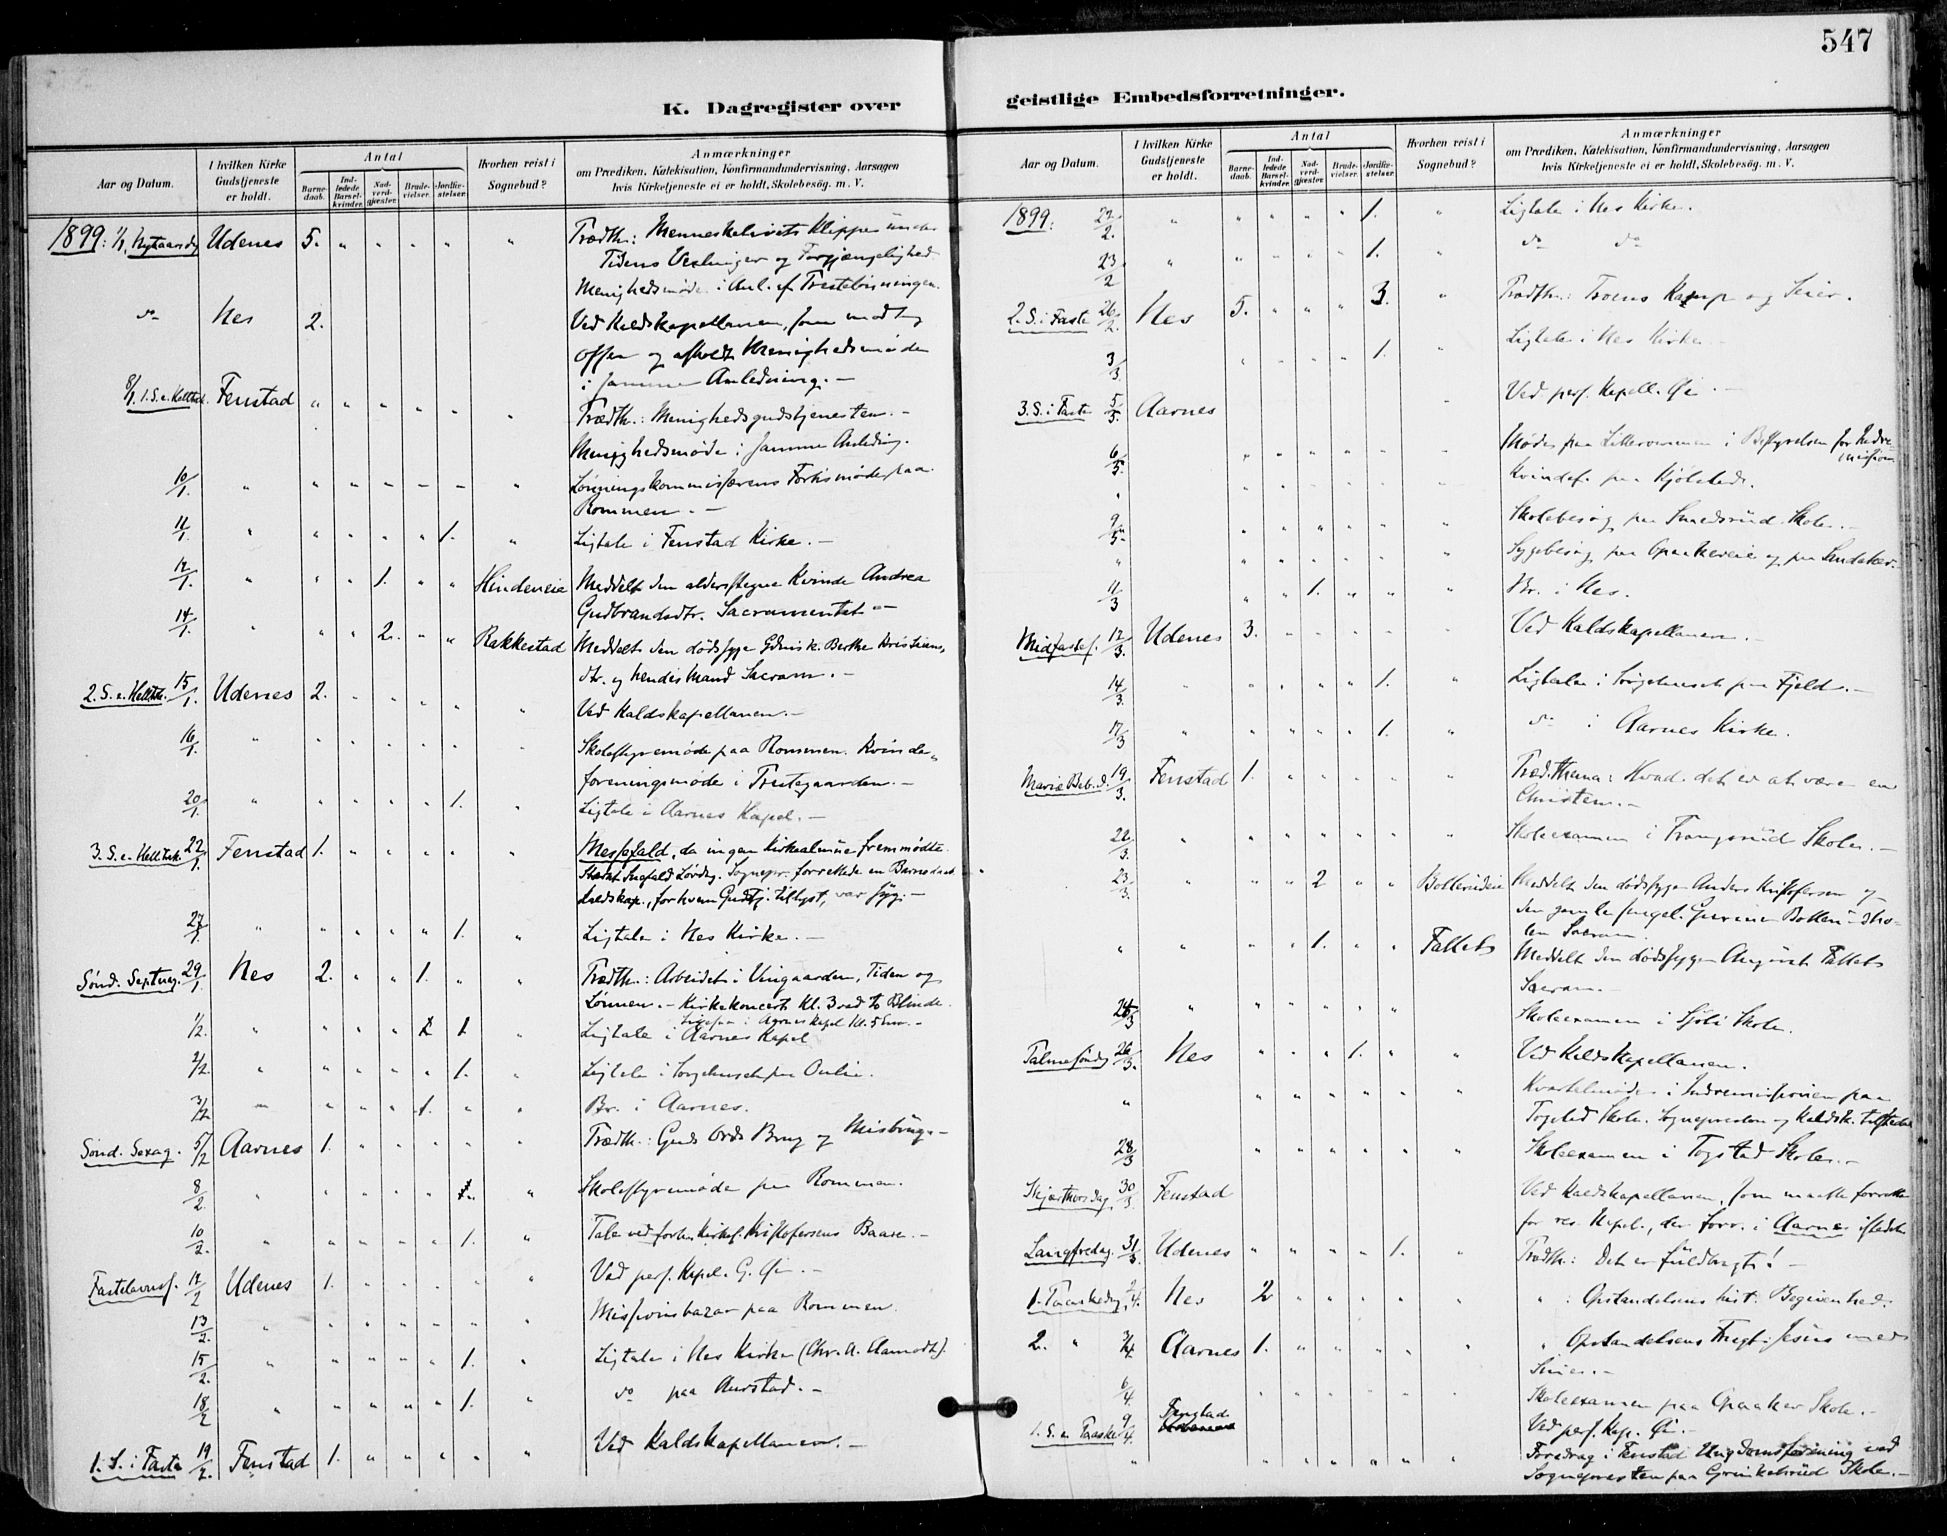 547
K. Dagregister over
geistlige Embedsforretninger.
Aar og Datum.
I hvilken Kirke Gudstjeneste er holdt.
Antal
Barnedaab.
Indledede Barselkvinder.
Nadverdgjæster.
Brudevielser.
Jordfæstelser.
Hvorhen reist i Sognebud?
Anmærkninger
om Prædiken, Katekisation, Konfirmandundervisning, Aarsagen
hvis Kirketjeneste ei er holdt, Skolebesøg. m. V.
1899: 1/1, Nytaarsdg Udenes 5. " " " " " Prædth.: Menneskelivets Klippe under
Tidens Vexlinger og Forgjængelighed
Menighedsmøde i Anl. af
do Nes 2. Ved Kaldskapellanen, som modtog
Offer og afholdt Menighedsmøde
i samme Anledning. –
8/1 1. S. e. Helltrek. Fenstad " " " " " " Prædth.: Menighedsgudstjenesten. –
Menighedsmøde i samme Anledng.
10/1 " " " – – – " Lønningskommissærens Forhsmøde paa
Rommen. –
11/1 " " " " " 1. " Ligtale i Fenstad Kirke. –
12/1 " " " 1. " " Hindeneie Meddelt den alderstegne Kvinde Andrea
Gudbrandsdtr. Sacramentet –
14/1 " " " 2. " " Rakkestad Meddelt den dødssyge Berthe Kristians-
dtr. og hendes Mand Sacram. –
2. S. e. Helltrk. 15/1 Udenes 2. " " " " " Ved Kaldskapellanen. –
16/1 " " " " " " " Skolestyremøde paa Rommen. Kvinde-
foreningsmøde i Prestegaarden. –
20/1 " " " " " 1. " Ligtale i Aarnes Kapel. –
3. S. e. Helltrk. 22/1 Fenstad 1. " " " " " Messefald, da ingen Kirkealmue fremmødte.
Sognepr. forrettede en Barnedaab
Kaldskap., for hvem Gudstj. tillyst, var syg. –
27/1 " " " " " 1. " Ligtale i Nes Kirke. –
Sønd. Septuag. 29/1 Nes 2. " " 1. " " Prædth.: Arbeidet i Vingaarden, Tiden og
Lønnen. – Kirkekoncert Kl. 3 ved to Blinde.
i Aarnes Kapel Kl. 5 Em. –
1/2 " " " " 1 " Ligtale i Aarnes Kapel
2/2 " " " " " 1. " Ligtale i Sørgehuset paa Aulie.
3/2 – " " " 1. " " Br. i Aarnes.
Sønd. Sexag. 5/2 Aarnes 1. " " " " " Prædth.: Guds Ords Brug og Misbrug. –
8/2 " " " " " " Skolestyremøde paa Rommen.
10/2. " " " " " 1. " Tale ved Kirkes. Kristofersens Baare. –
Fastelavnss. 12/2 Udenes 1. " " " " " Ved pers. Kapel. G. Øi. –
13/2. " " " " " " " Missionsbazar paa Rommen.
15/2. " " " " " 1. " Ligtale i Nes Kirke (Chr. A. Aamodt).
18/2 " " " " " 1. " do paa Aurstad. –
1. S. i Faste 19/2. Fenstad 1. " " " " " Ved Kaldskapellanen. –
Aar og Datum.
I hvilken Kirke Gudstjeneste er holdt.
Antal
Barnedaab.
Indledede Barselkvinder.
Nadverdgjæster.
Brudevielser.
Jordfæstelser.
Hvorhen reist i Sognebud?
Anmærkninger
om Prædiken, Katekisation, Konfirmandundervisning, Aarsagen
hvis Kirketjeneste ei er holdt, Skolebesøg. m. V.
1899: 22/2. " " " " " 1. " Ligtale i Nes Kirke.
23/2 " " " " " 1. " do do
2. S. i Faste 26/2. Nes 5. " " " 3. " Prædth.: Troens Kamp og Seier.
3/3. " " " " 1. Ligtale i Nes Kirke. –
3. S. i Faste 5/3. Aarnes " Ved pers. Kapell. Øi. –
6/3. " " " " " " Møde paa Lillerommen i Bestyrelsen for Indre-
mission
" " " " " " " Kvindef. paa Kjølstad.
9/3 " " " " " " Skolebesøg paa Smedsrud Skole. –
" " " " " " " Sygebesøg paa Opaakereie og paa
11/3 " " 1. " " " Br. i Nes.
Midfastes. 12/3. Udenes 3. " " " " " Ved Kaldskapellanen. –
14/3. " " " " " 1. " Ligtale i Sørgehuset paa Fjeld. –
17/3 " " " " " 1. " do i Aarnes Kirke.
Mariæ Beb. d. 19/3. Fenstad 1. " " " " " Præd. Thema: Hvad det er at være en
Christen. –
22/3. " " " " " " " Skoleexamen i Trangsrud Skole. –
23/3. " " " 2 " " Meddelt den dødssyge Anders Kristofersen og
den gamle
Sacram.
" " " " 1. " " Fallets Meddelt den dødssyge August Fallets
Sacram. –
/3 " " " " " " Skoleexamen i Sjøli Skole.
Palmesøndg 26/3. Nes " " " 1. " " Ved Kaldskapellanen.
" " " " " " " Kvartalmøde i Indremissionen paa
Togstad Skole. Sognepresten og Kaldsk. tilstede
28/3 " " " " " " Skoleexamen i Togstad Skole. –
Skjærthorsdag. 30/3 Fenstad Ved Kaldskapellanen, som maatte forrette
for res. Kapel., der forr. i Aarnes istedet
Langfredag. 31/3 Udenes " " " " 1. " Prædth.: Det er fuldbragt! –
1. Paaskedg. 2/4. Nes 2 " " " " " " : Opstandelsens hist. Begivenhed.
2. " 3/4 Aarnes 1. " " " " " " Opstandelsens Frugt: Jesus med
6/4. " " " " " Skoleexamen paa Opaaker Skole. –
1. S. e. Paaske 9/4. Fenstad Ved pers. Kap. Øi. –
" " " " " " " Foredrag i Fenstad Ungdomsforening ved
Sognepresten paa Skole. –